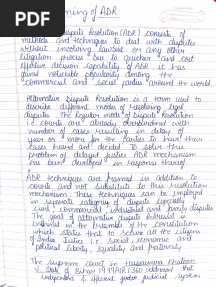 PDF
Meaning of ADR
Dispute Resolution (ADR) consists of
methods and techniques to deal with disputes
without involving lawsuit or any other
litigation process due to quicker and cost
effective decision capability of ADR it has
noticeable popularity among the
commercial and social parties around the world
Alternative Dispute Resolution is a term used to
describe different modes of resolving legal
disputes. The Regular mode of Dispute Resolution
i.e courts are already overburdened with
number of cases resulting in delay of
year or more for the parties to have their
cases heard and decided. To solve this
problem of delayed justice ADR mechanism
has been developed in response thereof
ADR techniques are formed in addition to
courts and not substitute to this resolution
mechanism. These techniques can be employed
in separate category of disputes especially
civil, commercial, industrial and family disputes
The goal of alternative dispute redressal is
in the preamble of the constitution
which states that to secure all the citizens
of India Justice i.e social, economic and
political liberty, equality and fraternity
The supreme court in Hussainara Khatoon
V. State of Bihar 1979 AIR 1360 addressed that
independent & efficient judicial system